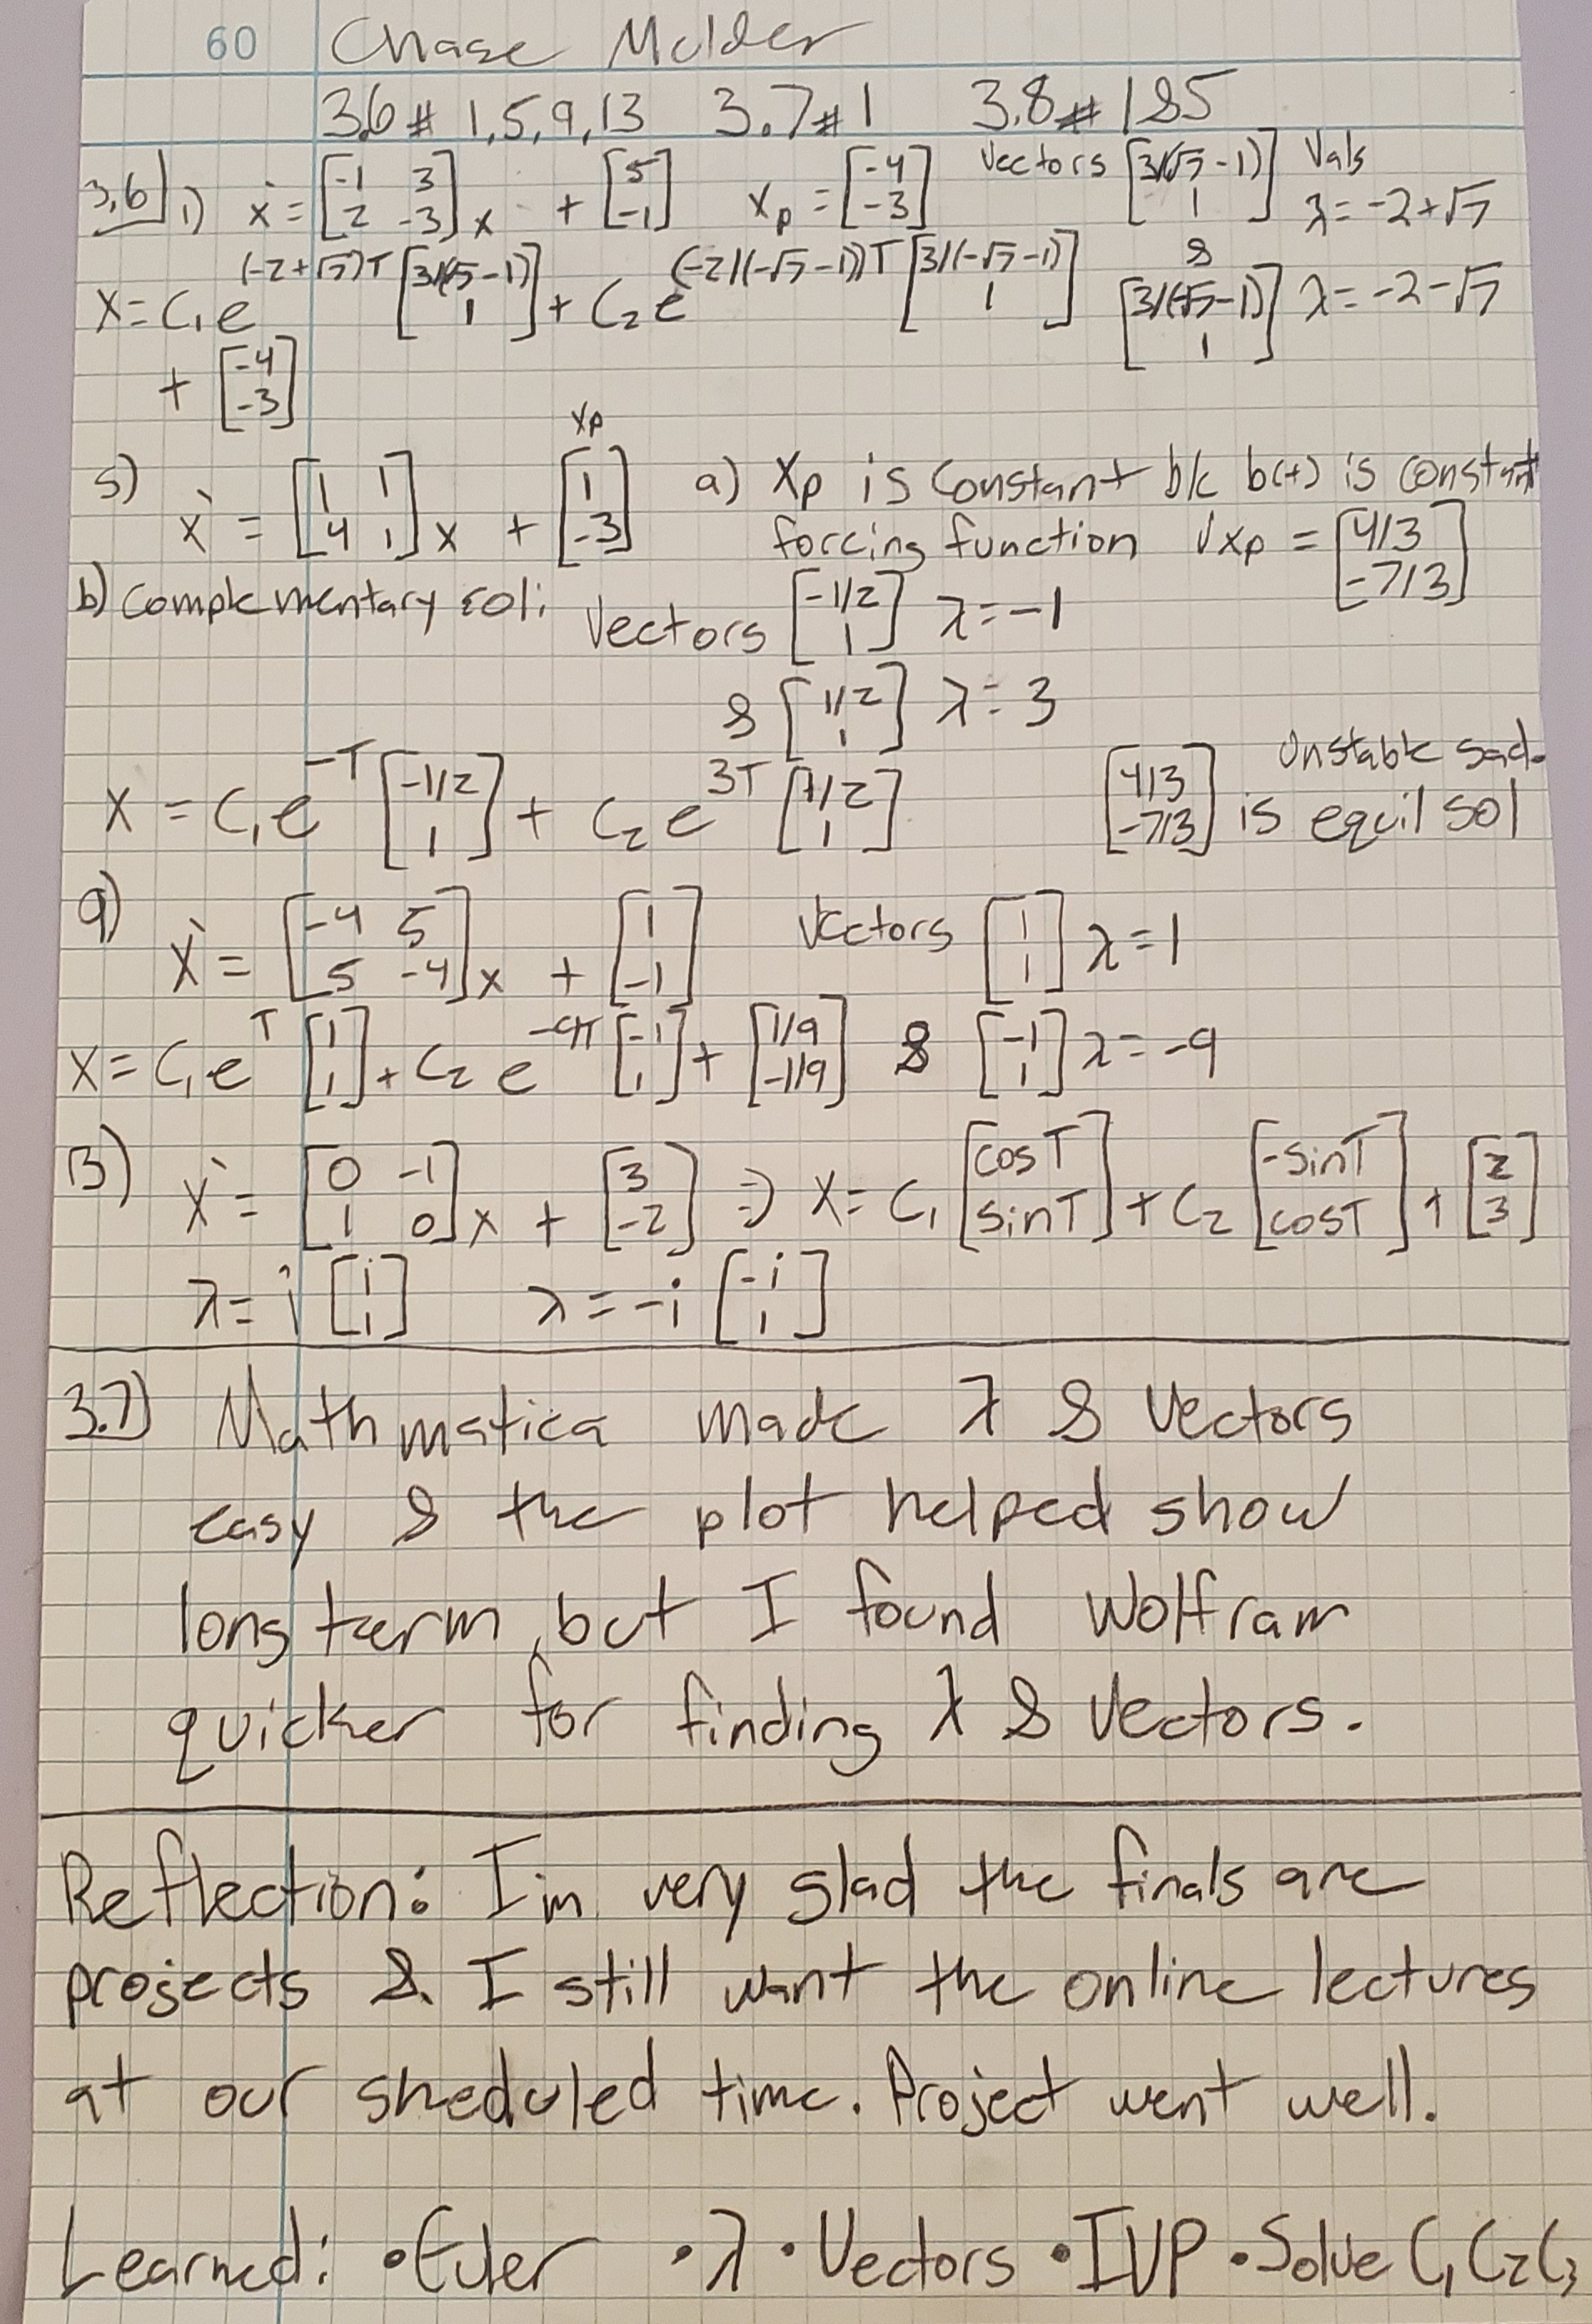 60 Chase Mulder
3.6 # 1,5,9,13 3.7 # 1 3.8 # 1&5
3.6 1) ẋ = [-1 3; 2 -3] x + [5; -1] xp = [-4; -3] Vectors [3/(√7-1); 1] Vals λ = -2+√7
x = C₁e^(-2+√7)T [3/(√7-1); 1] + C₂e^(-2/(-√7-1))T [3/(-√7-1); 1] & [3/(-√7-1); 1] λ = -2-√7
+ [-4; -3]
5) ẋ = [1 1; 4 1] x + [1; -3] xp a) Xp is constant b/c b(t) is constant
forcing function xp = [4/3; -7/3]
b) complementary sol: Vectors [-1/2; 1] λ = -1
& [1/2; 1] λ = 3
x = C₁e^-T [-1/2; 1] + C₂e^3T [1/2; 1] [4/3; -7/3] is equil sol Unstable sad.
9) ẋ = [-4 5; 5 -4] x + [1; -1] Vectors [1; 1] λ = 1
x = C₁e^T [1; 1] + C₂e^-9T [-1; 1] + [1/9; -1/9] & [-1; 1] λ = -9
13) ẋ = [0 -1; 1 0] x + [3; -2] ⇒ x = C₁ [cosT; sinT] + C₂ [-sinT; cosT] + [2; 3]
λ = i [i; 1] λ = -i [-i; 1]
3.7) Mathmatica made λ & Vectors
easy & the plot helped show
long term, but I found Wolfram
quicker for finding λ & Vectors.
Reflection: I'm very glad the finals are
projects & I still want the online lectures
at our sheduled time. Project went well.
Learned: •Euler •λ •Vectors •IVP •Solve C₁C₂C₃